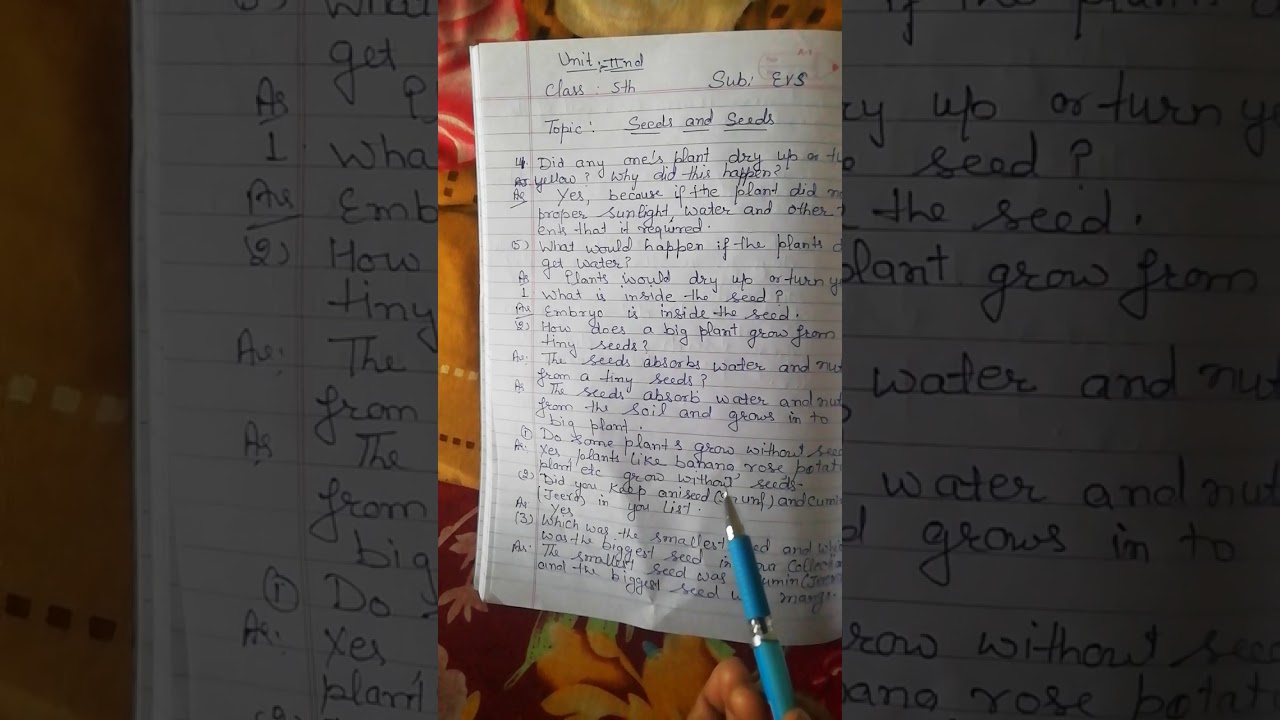 Unit: IInd
Class : 5th Sub: EVS
Topic: Seeds and Seeds
4. Did any one's plant dry up or tu
yellow? Why did this happen?
As Yes, because if the plant did n
proper sunlight, water and other
ents that it required.
5) What would happen if the plants d
get water?
As Plants would dry up or turn ye
1 What is inside the seed?
Ans Embryo is inside the seed.
(2) How does a big plant grow from
tiny seeds?
As: The seeds absorbs water and nut
from a tiny seeds?
As The seeds absorb water and nut
from the soil and grows in to
big plant.
① Do some plants grow without seed
As. Yes plants like banana rose potat
plant etc grow without seeds-
(2) Did you keep aniseed and Cumin
(Jeera) in you list.
As Yes
(3) Which was the smallest and whi
was the biggest seed in Collect
As: The smallest seed was (Jeera
and the biggest seed